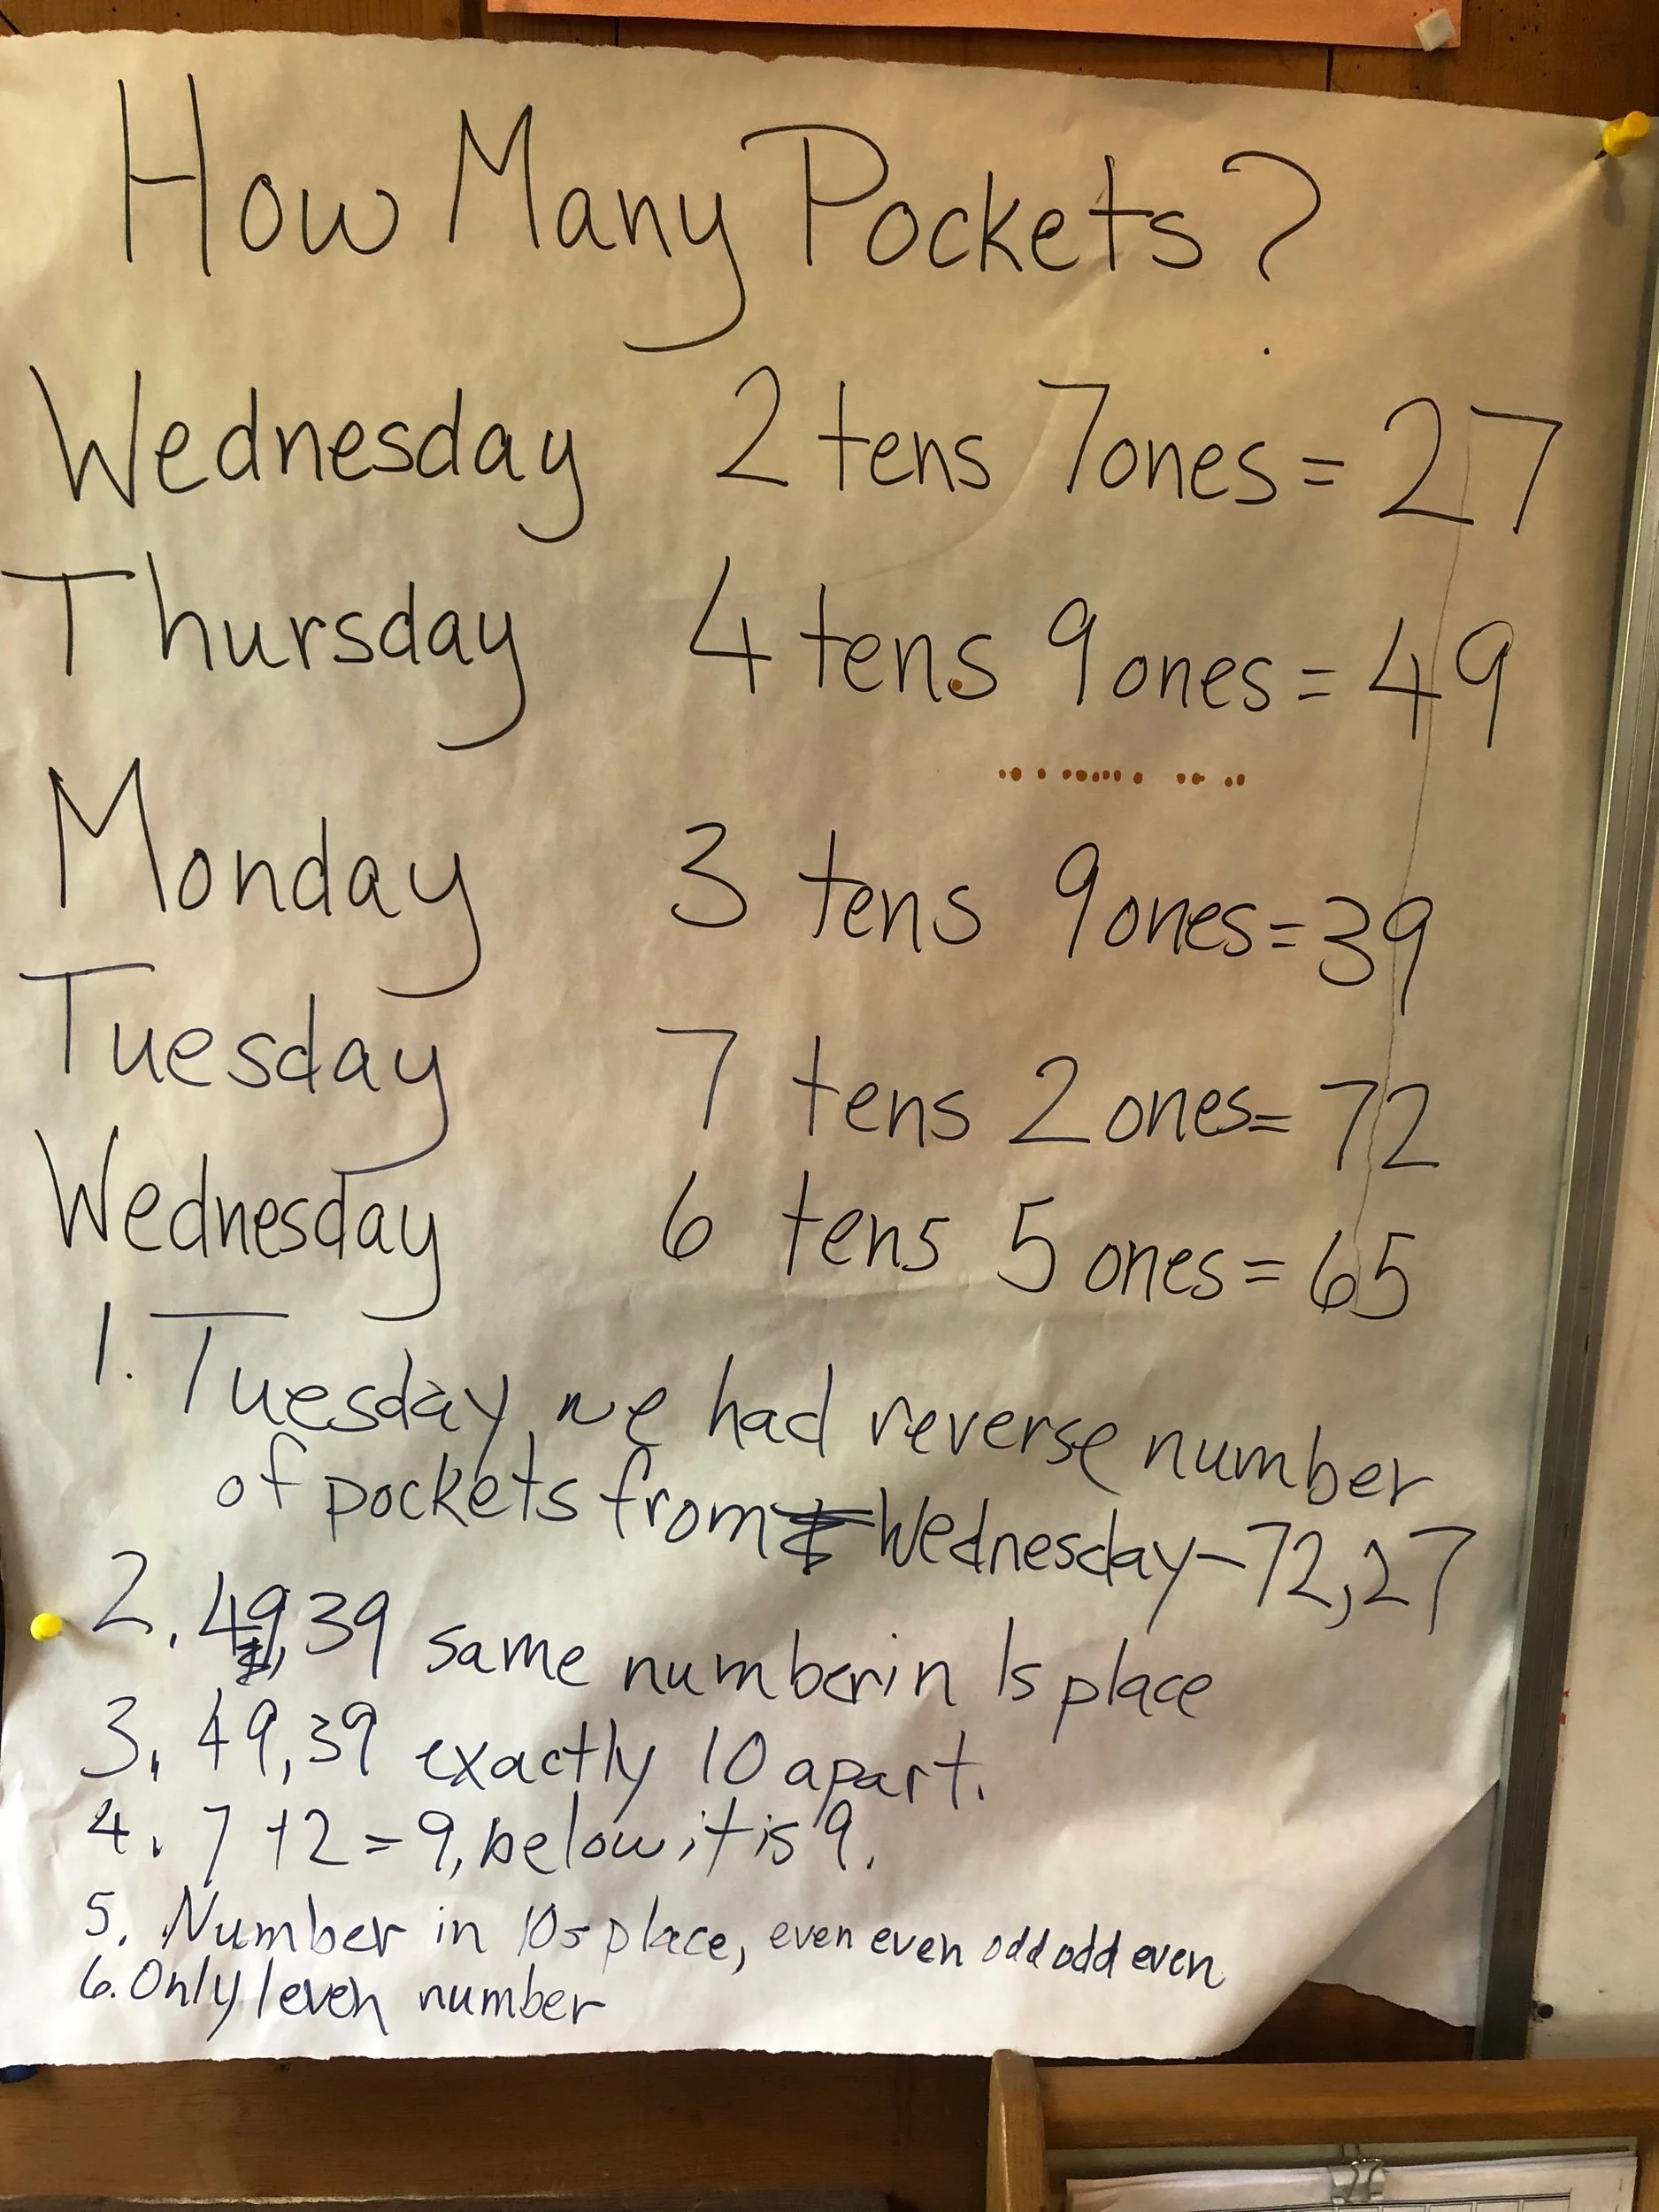 How Many Pockets?
Wednesday 2 tens 7 ones = 27
Thursday 4 tens 9 ones = 49
Monday 3 tens 9 ones = 39
Tuesday 7 tens 2 ones = 72
Wednesday 6 tens 5 ones = 65
1. Tuesday we had reverse number
of pockets from Wednesday - 72, 27
2. 49, 39 same number in 1s place
3. 49, 39 exactly 10 apart.
4. 7 + 2 = 9, below it is 9.
5. Number in 10s place, even even odd odd even
6. Only 1 even number